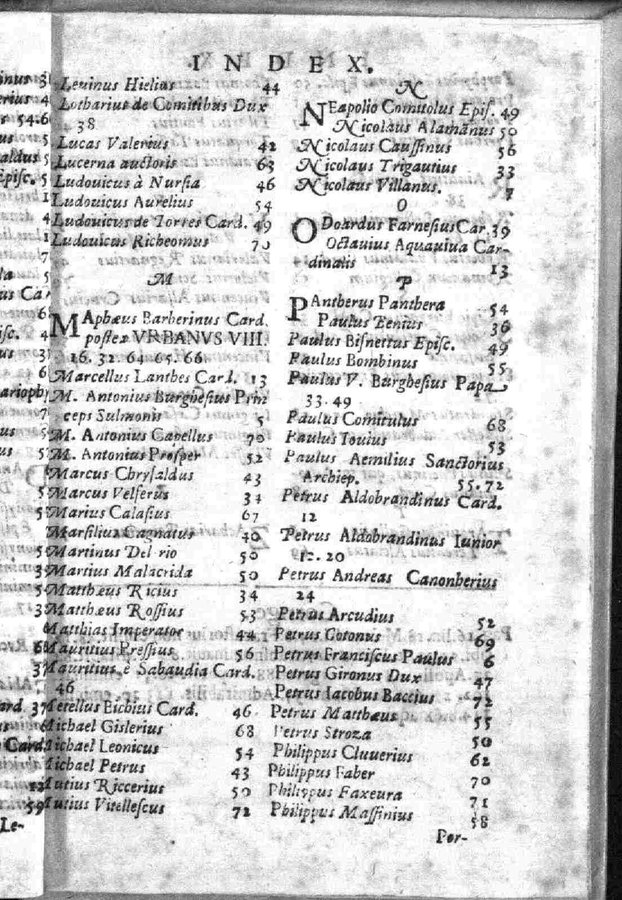 INDEX.
Leuinus Hielius 44
Lotharius de Comitibus Dux
38
Lucas Valerius 42
Lucerna auctoris 63
Ludouicus à Nursia 46
Ludouicus Aurelius 54
Ludouicus de Torres Card. 49
Ludouicus Richeomus 70
M
MAphæus Barberinus Card.
postea VRBANVS VIII.
16. 31 64 65. 66
Marcellus Lanthes Card. 13
M. Antonius Burghesius Prin
ceps Sulmonis 5
M. Antonius Capellus 70
M. Antonius Prosper 52
Marcus Chrysaldus 43
Marcus Velserus 34
Marius Calasius 67
Marsilius Cagnatus 40
Martinus Del rio 50
Martius Malacrida 50
Matthæus Ricius 34
Matthæus Rossius 53
Matthias Imperator 44
Mauritius Pressius 56
Mauritius è Sabaudia Card.
46
Metellus Bichius Card. 46
Michael Gislerius 68
Michael Leonicus 54
Michael Petrus 43
Mutius Riccerius 50
Mutius Vitellescus 72
N
NEapolio Comitolus Epis. 49
Nicolaus Alamanus 50
Nicolaus Caussinus 56
Nicolaus Trigautius 33
Nicolaus Villanus. 7
O
ODoardus Farnesius Car. 39
Octauius Aquauiua Car-
dinalis 13
P
PAntherus Panthera 54
Paulus Benius 36
Paulus Bisnettus Episc. 49
Paulus Bombinus 55
Paulus V. Burghesius Papa
33. 49
Paulus Comitulus 68
Paulus Iouius 53
Paulus Aemilius Sanctorius
Archiep. 55. 72
Petrus Aldobrandinus Card.
12
Petrus Aldobrandinus Iunior
12. 20
Petrus Andreas Canonherius
24
Petrus Arcudius 52
Petrus Cotonus 69
Petrus Franciscus Paulus 6
Petrus Gironus Dux 47
Petrus Iacobus Baccius 72
Petrus Matthæus 55
Petrus Stroza 50
Philippus Cluuerius 62
Philippus Faber 70
Philippus Faxeura 71
Philippus Massinius 58
Por-